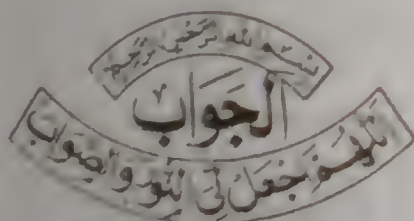 بسم الله الرحمن الرحيم
الجَوَابُ
اَللّٰهُمَّ اجْعَلْ لِّي النُّوْرَ وَالصَّوَابَ